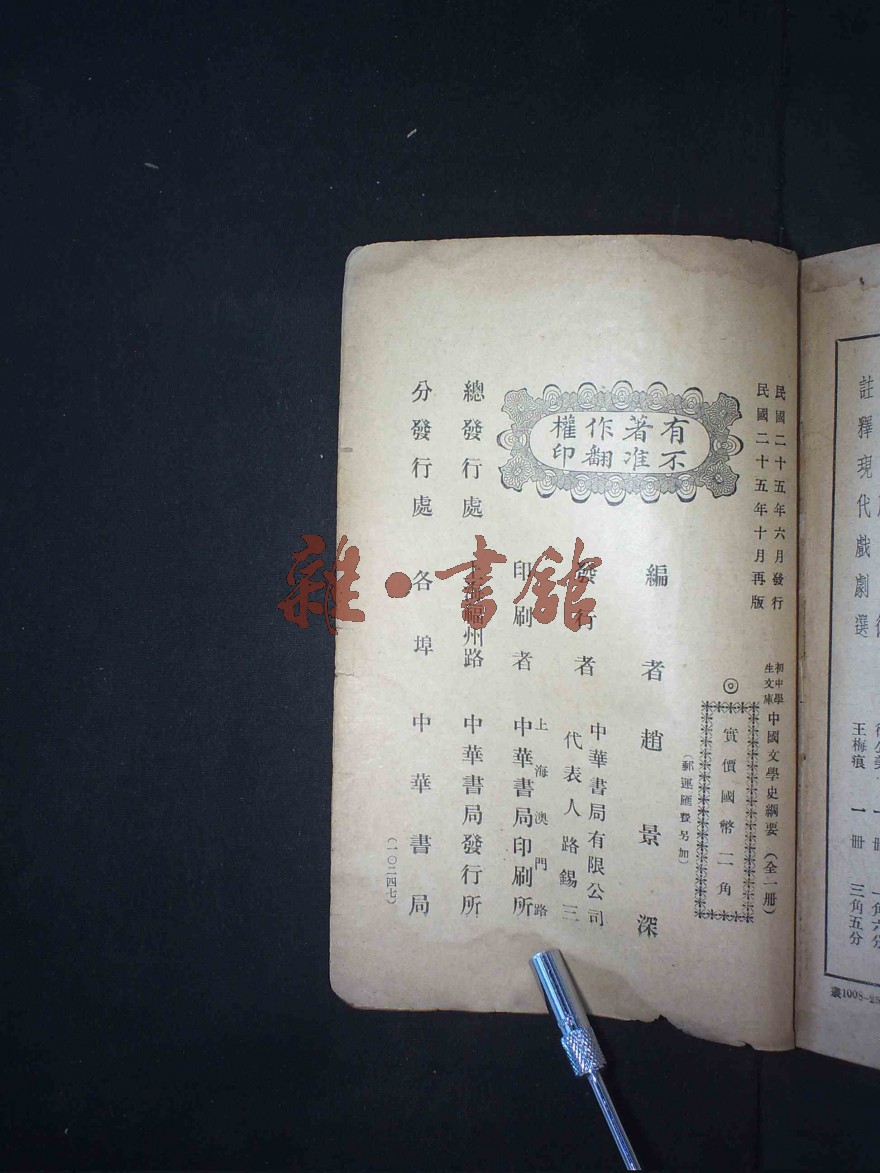 民國二十五年六月發行
民國二十五年十月再版
初中學生文庫
中國文學史綱要（全一册）
◎實價國幣二角
（郵運匯費另加）
有著作權
不准翻印
編者 趙景深
發行者 中華書局有限公司
代表人路錫三
印刷者 上海澳門路
中華書局印刷所
總發行處 上海福州路 中華書局發行所
分發行處 各埠 中華書局
（一〇二四七）
雜·書館
註釋現代戲劇選
王梅痕 一册 三角五分
叢1008-25